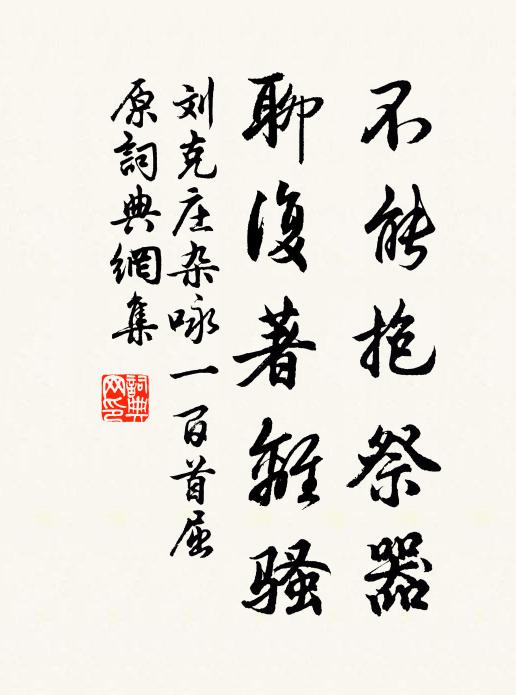 不能抱祭器
聊復著離騷
刘克庄杂咏一百首屈
原詞典網集
詞典
网印